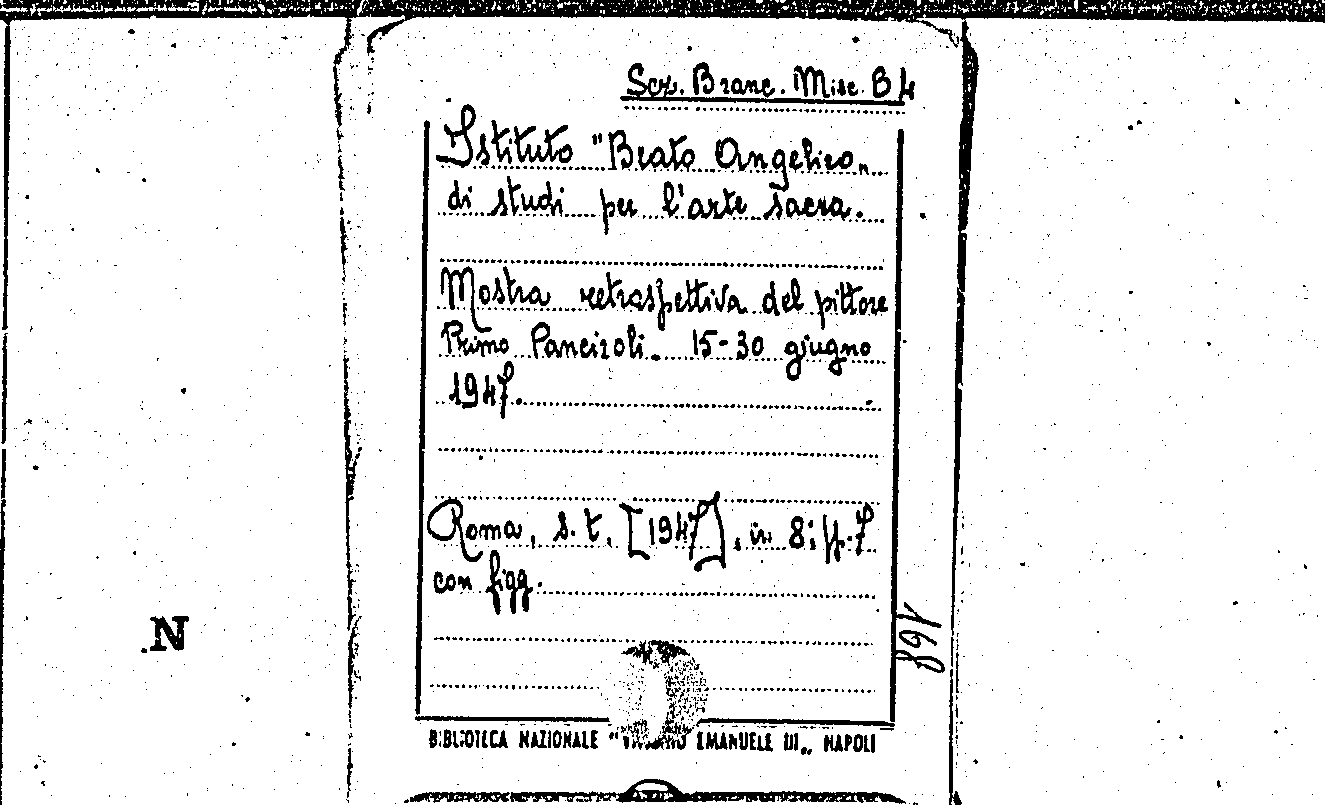 Sez. Branc. Misc. B 4
Istituto "Beato Angelico„
di studi per l'arte sacra.
Mostra retrospettiva del pittore
Primo Panciroli. 15-30 giugno
1947.
Roma, s. t. [1947], in 8; pp. 7
con figg.
168
N
BIBLIOTECA NAZIONALE "VITTORIO EMANUELE III„ NAPOLI